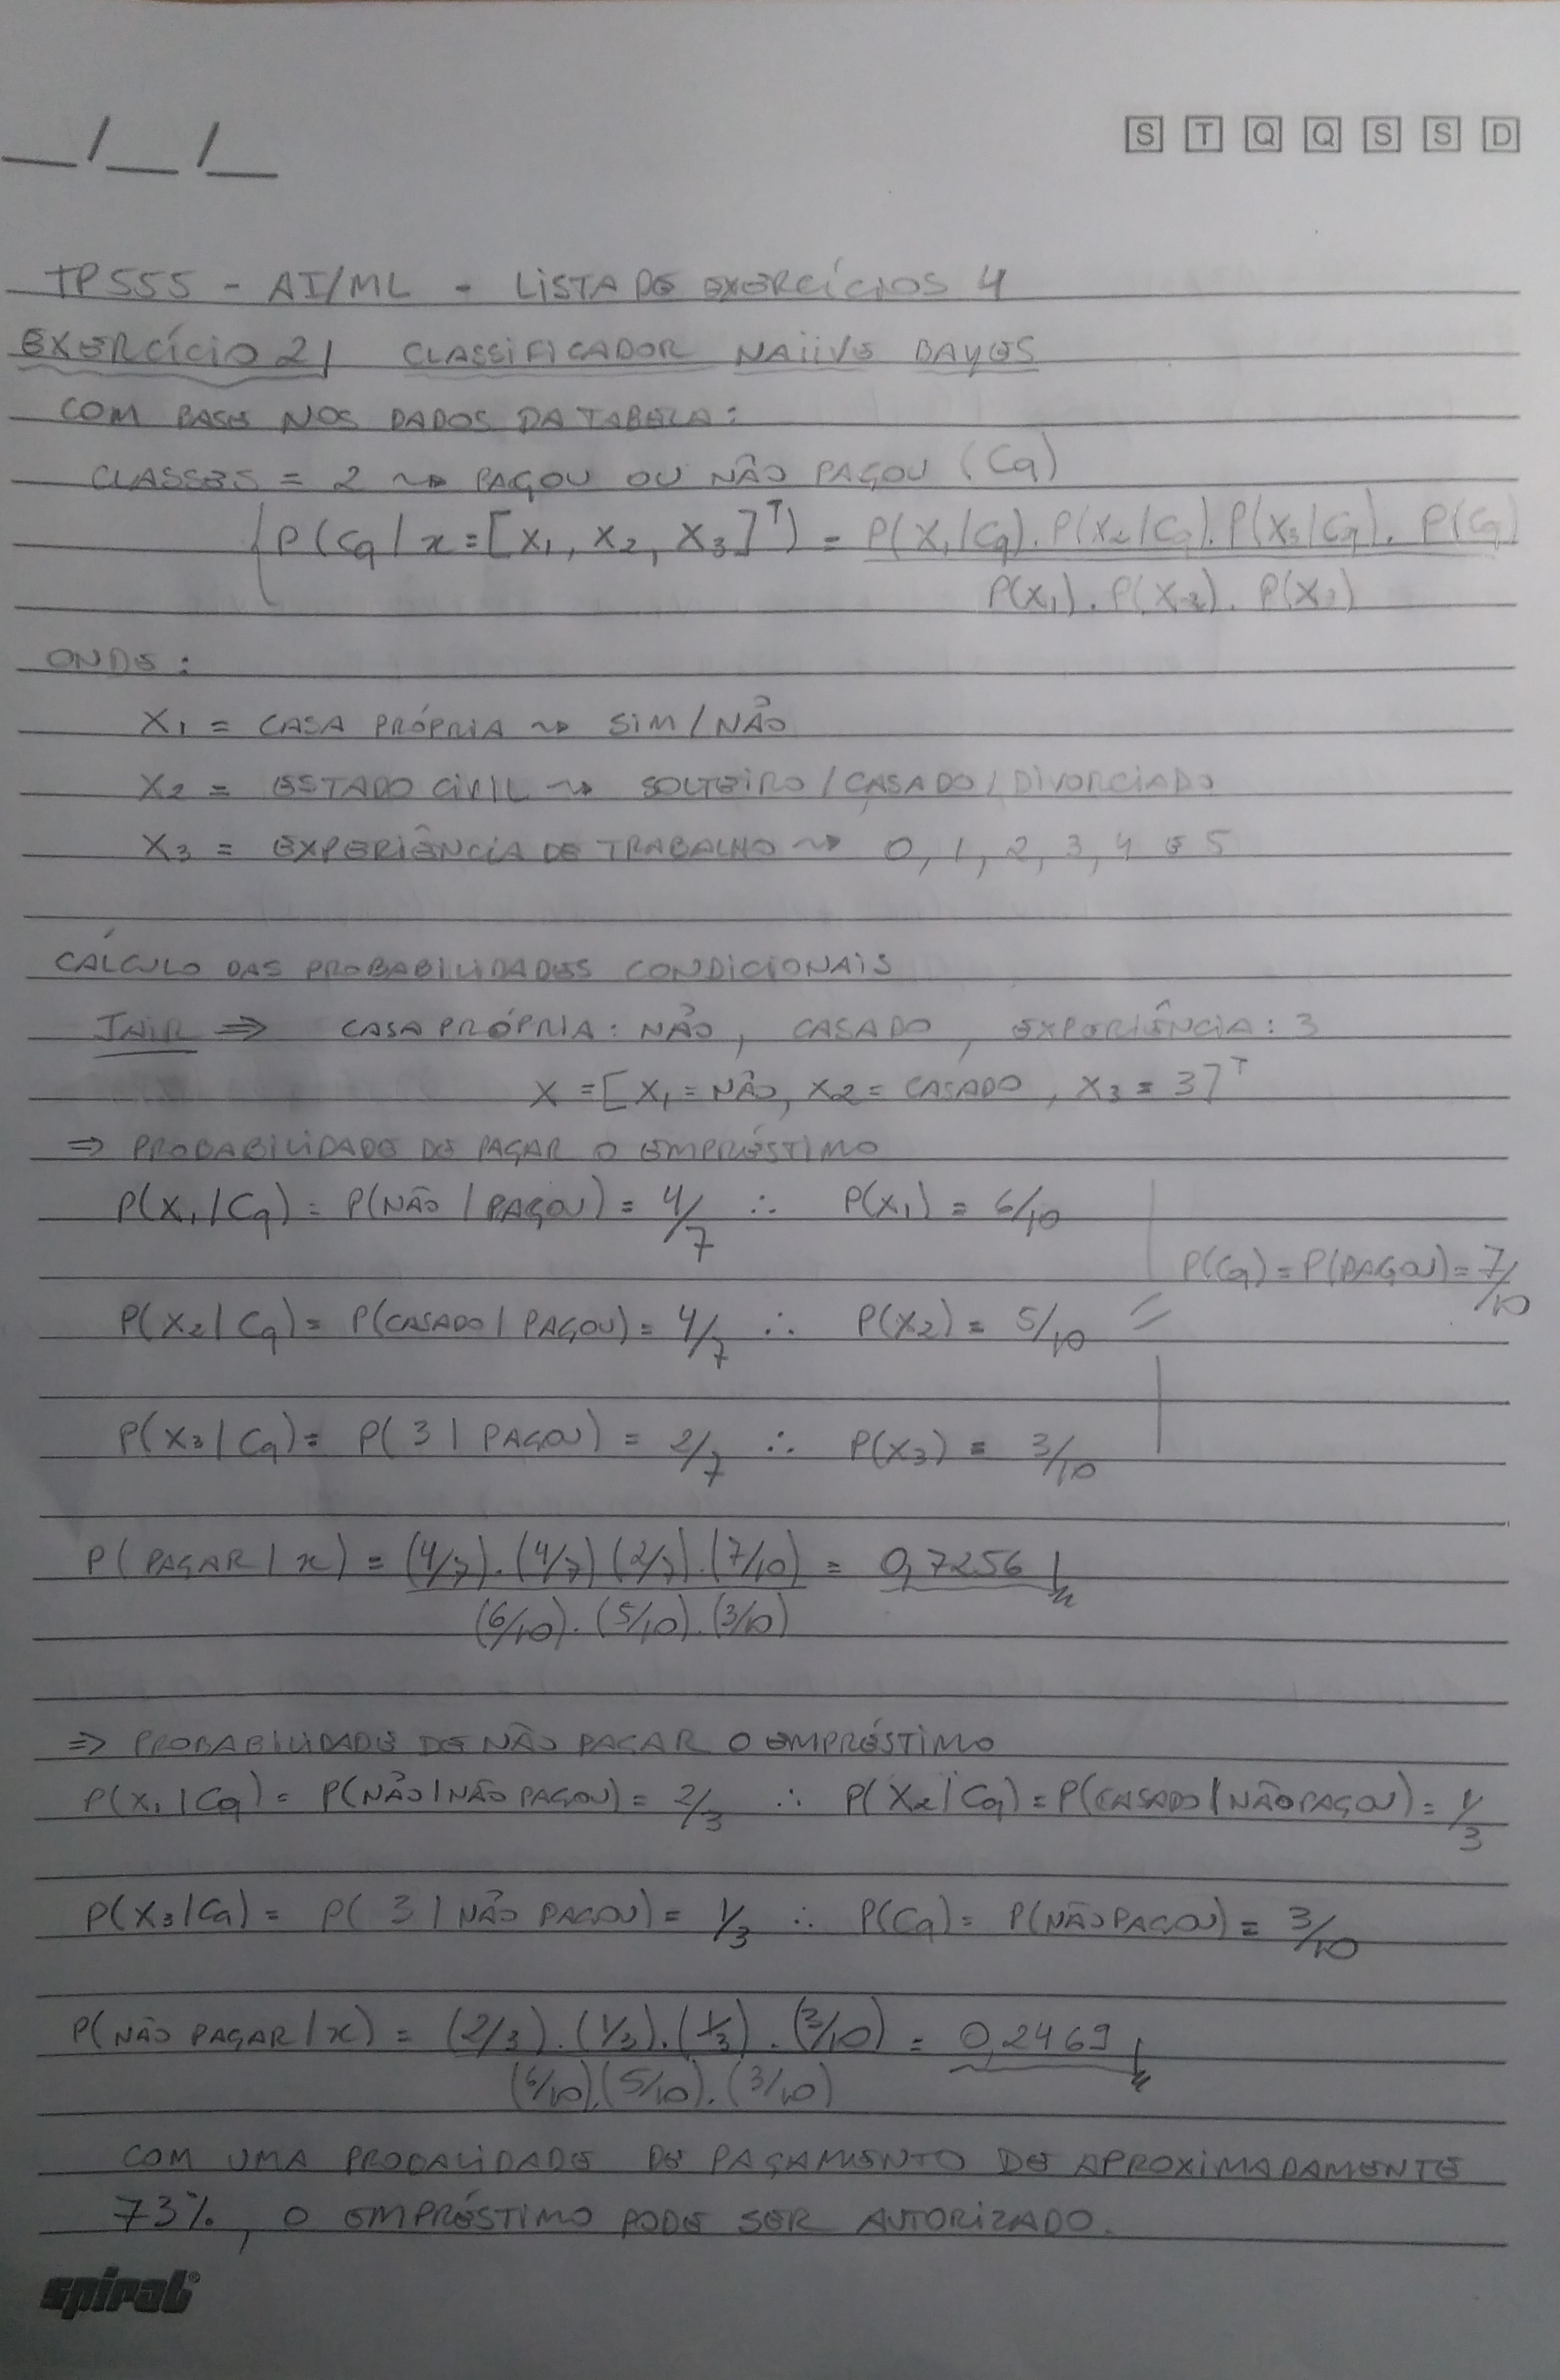 __/__/__
S T Q Q S S D
TP555 - AI/ML - LISTA DE EXERCÍCIOS 4
EXERCÍCIO 2| CLASSIFICADOR NAIIVE BAYES
COM BASE NOS DADOS DA TABELA:
CLASSES = 2 ⇝ PAGOU OU NÃO PAGOU (Cq)
P(Cq/x=[X1, X2, X3]ᵀ) = P(X1/Cq). P(X2/Cq). P(X3/Cq). P(Cq)
P(X1). P(X2). P(X3)
ONDE:
X1 = CASA PRÓPRIA ⇝ SIM/NÃO
X2 = ESTADO CIVIL ⇝ SOLTEIRO/CASADO/DIVORCIADO
X3 = EXPERIÊNCIA DE TRABALHO ⇝ 0, 1, 2, 3, 4 E 5
CÁLCULO DAS PROBABILIDADES CONDICIONAIS
JAIR ⇒ CASA PRÓPRIA: NÃO, CASADO, EXPERIÊNCIA: 3
X = [X1 = NÃO, X2 = CASADO, X3 = 3]ᵀ
⇒ PROBABILIDADE DE PAGAR O EMPRÉSTIMO
P(X1/Cq) = P(NÃO/PAGOU) = 4/7 ∴ P(X1) = 6/10
P(Cq) = P(PAGOU) = 7/10
P(X2/Cq) = P(CASADO/PAGOU) = 4/7 ∴ P(X2) = 5/10
P(X3/Cq) = P(3/PAGOU) = 2/7 ∴ P(X3) = 3/10
P(PAGAR/x) = (4/7).(4/7)(2/7).(7/10) = 0,7256
(6/10).(5/10).(3/10)
⇒ PROBABILIDADE DE NÃO PAGAR O EMPRÉSTIMO
P(X1/Cq) = P(NÃO/NÃO PAGOU) = 2/3 ∴ P(X2/Cq) = P(CASADO/NÃO PAGOU) = 1/3
P(X3/Cq) = P(3/NÃO PAGOU) = 1/3 ∴ P(Cq) = P(NÃO PAGOU) = 3/10
P(NÃO PAGAR/x) = (2/3).(1/3).(1/3).(3/10) = 0,2469
(6/10).(5/10).(3/10)
COM UMA PROBALIDADE DE PAGAMENTO DE APROXIMADAMENTE
73%, O EMPRÉSTIMO PODE SER AUTORIZADO.
spiral®